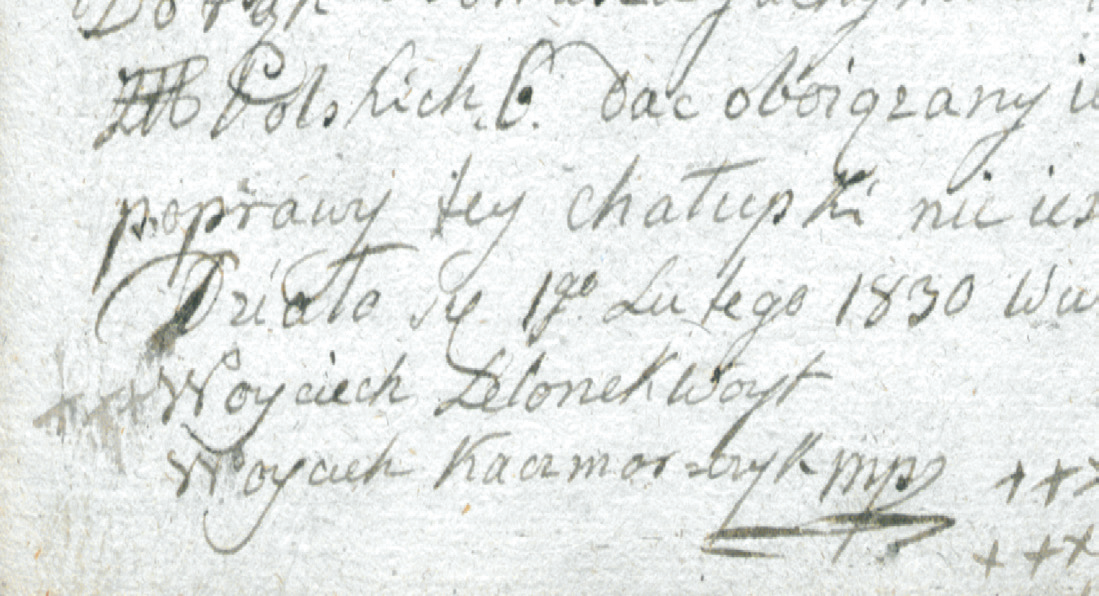 Do rąk
Polskich 6. dac oboigzany
poprawy tey chałupki nic
Działo się 1go Lutego 1830 w
+++ Woyciech Zelonek Woyt
Woyciech Kaczmorszczyk mp +++
+++